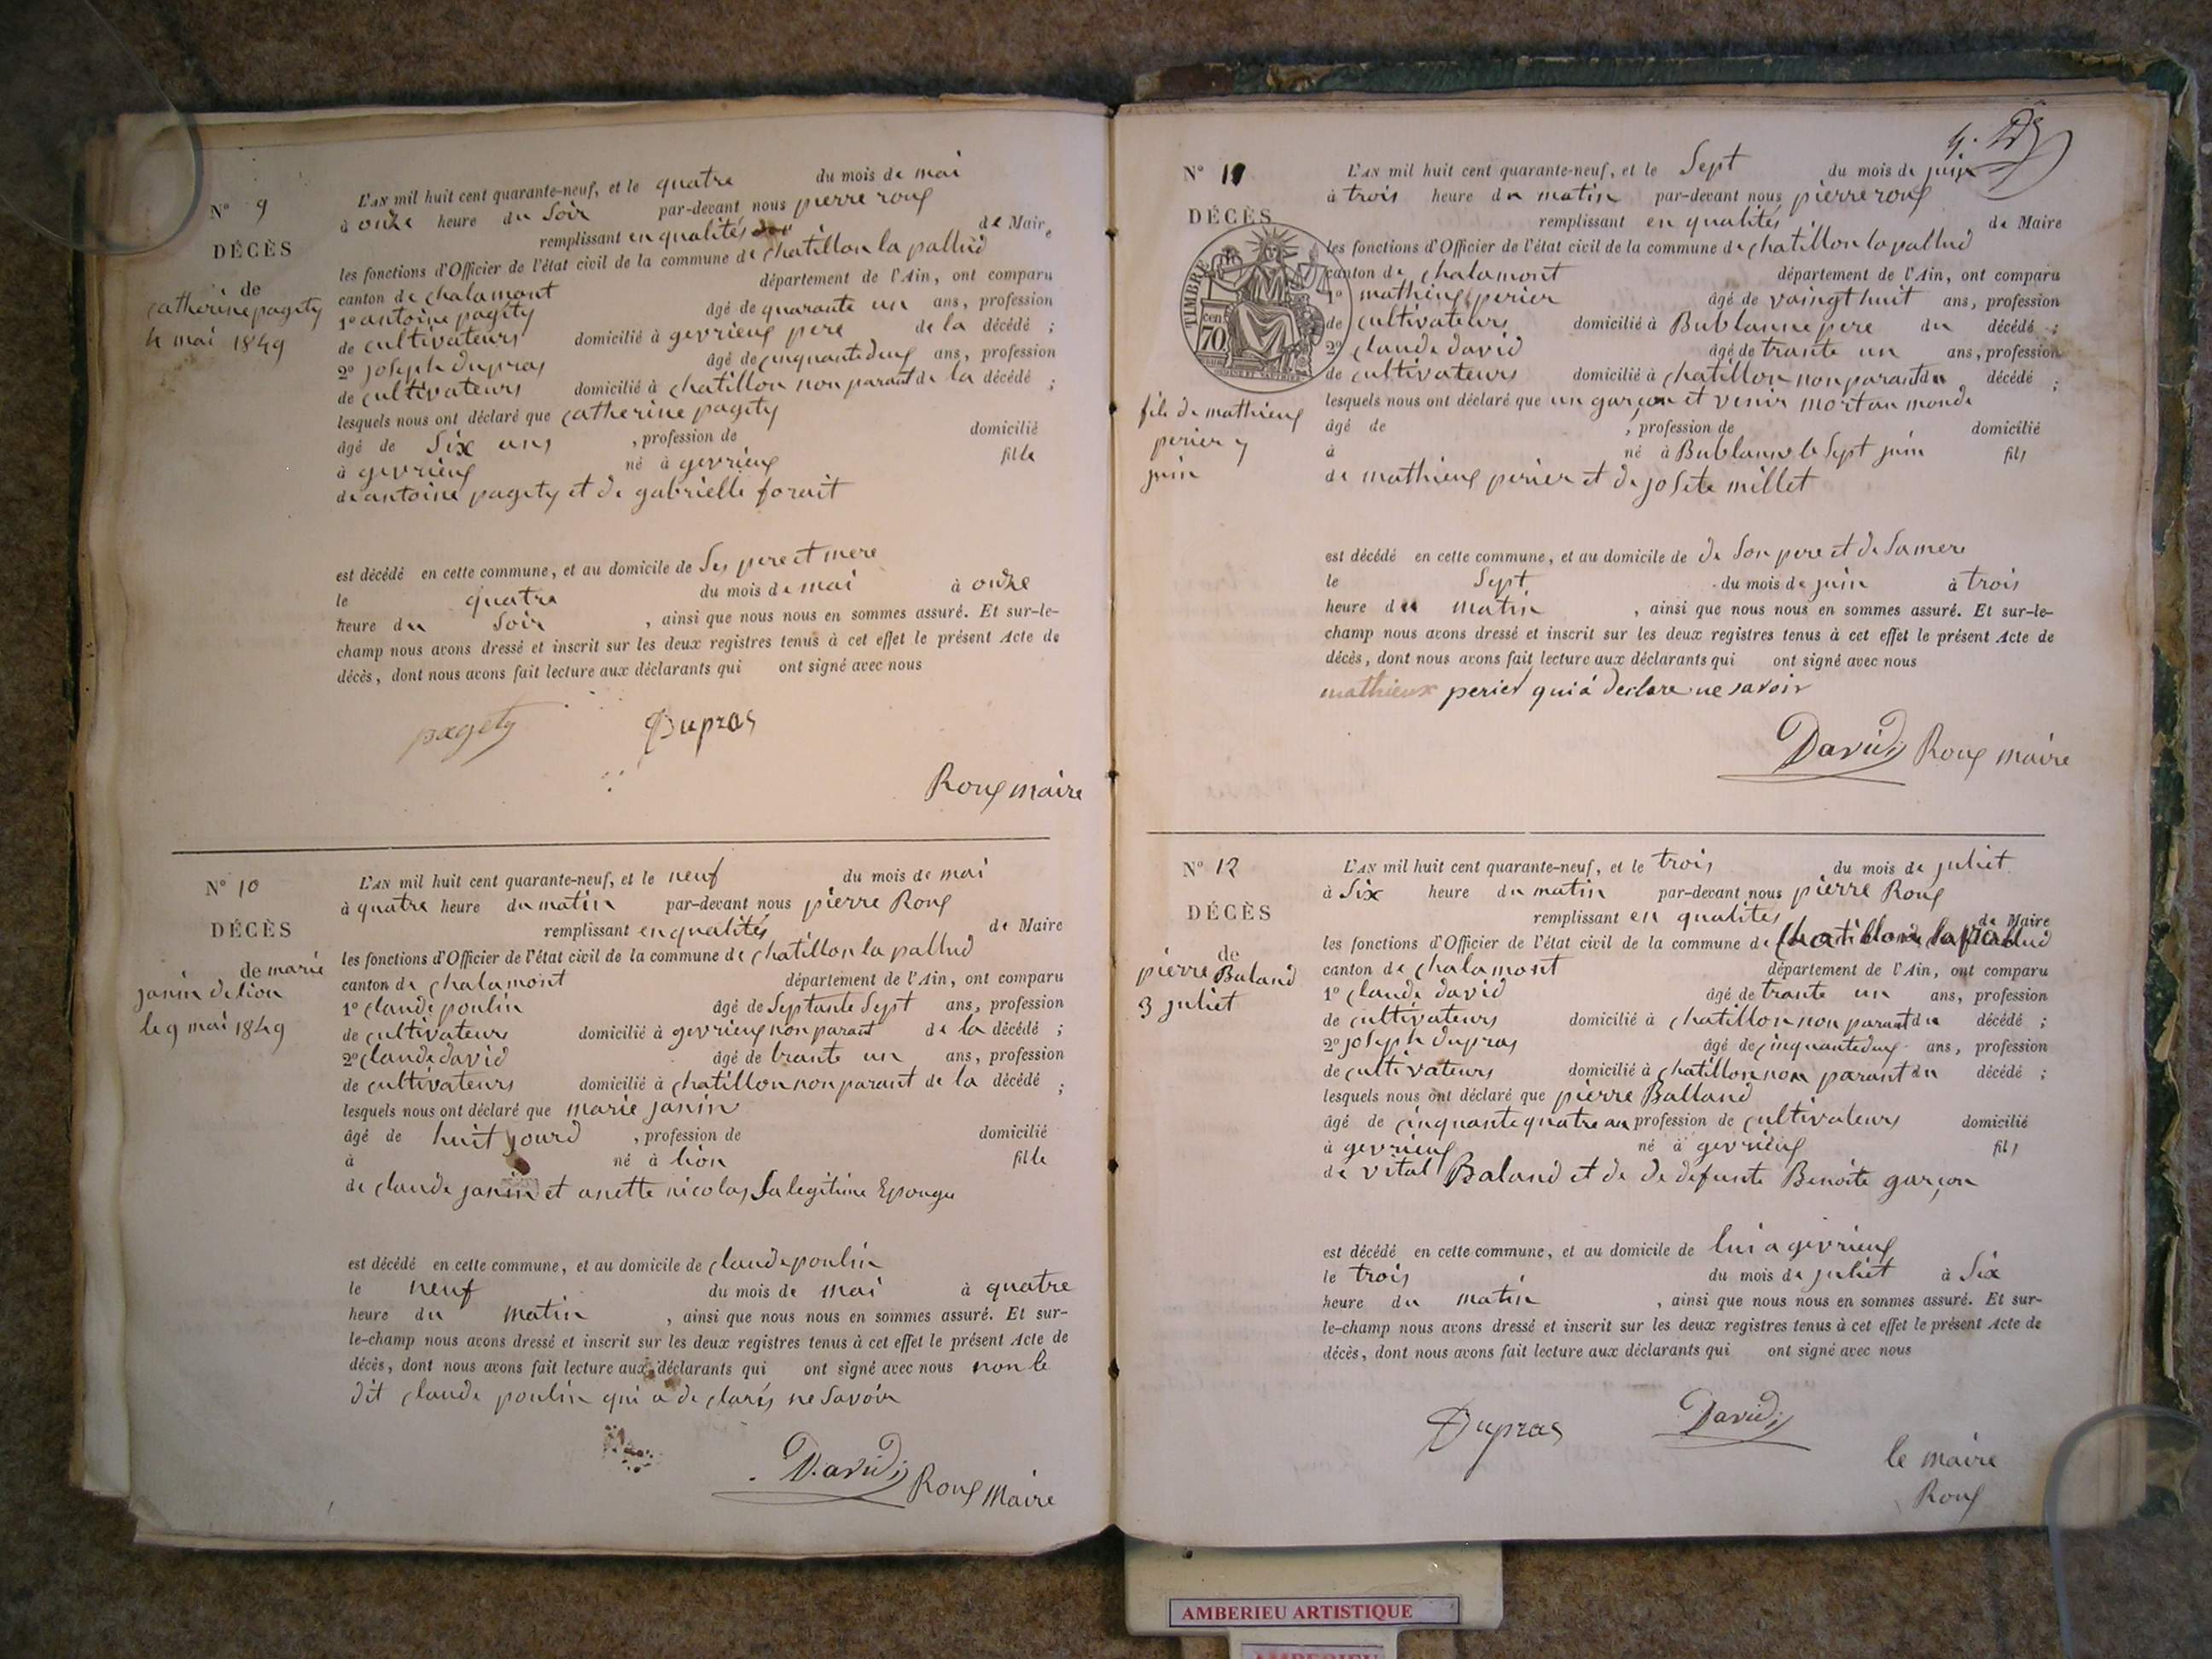 N° 9
DÉCÈS
de
catherine pagety
4 mai 1849
L'AN mil huit cent quarante-neuf, et le quatre du mois de mai
à onze heure du Soir par-devant nous pierre roux
remplissant en qualités de Maire
les fonctions d'Officier de l'état civil de la commune de chatillon la pallud
canton de chalamont département de l'Ain, ont comparu
1° antoine pagety âgé de quarante un ans, profession
de cultivateurs domicilié à gevrieux pere de la décédé ;
2° joseph dupras âgé de cinquante deux ans, profession
de cultivateurs domicilié à chatillon non parant de la décédé ;
lesquels nous ont déclaré que catherine pagety
âgé de Six ans , profession de domicilié
à gevrieux né à gevrieux fille
de antoine pagety et de gabrielle forait
est décédé en cette commune, et au domicile de Ses pere et mere
le quatre du mois de mai à onze
heure du Soir , ainsi que nous nous en sommes assuré. Et sur-le-
champ nous avons dressé et inscrit sur les deux registres tenus à cet effet le présent Acte de
décès, dont nous avons fait lecture aux déclarants qui ont signé avec nous
pagety Dupras
Roux maire
N° 10
DÉCÈS
de marie
janin de lion
le 9 mai 1849
L'AN mil huit cent quarante-neuf, et le neuf du mois de mai
à quatre heure du matin par-devant nous pierre Roux
remplissant en qualités de Maire
les fonctions d'Officier de l'état civil de la commune de chatillon la pallud
canton de chalamont département de l'Ain, ont comparu
1° claude poulin âgé de Septante Sept ans, profession
de cultivateurs domicilié à gevrieux non parant de la décédé ;
2° claude david âgé de trante un ans, profession
de cultivateurs domicilié à chatillon non parant de la décédé ;
lesquels nous ont déclaré que marie janin
âgé de huit jourd , profession de domicilié
à né à lion fille
de claude janin et anette nicolas Sa legitime Epouge
est décédé en cette commune, et au domicile de claude poulin
le neuf du mois de mai à quatre
heure du matin , ainsi que nous nous en sommes assuré. Et sur-
le-champ nous avons dressé et inscrit sur les deux registres tenus à cet effet le présent Acte de
décès, dont nous avons fait lecture aux déclarants qui ont signé avec nous non le
dit claude poulin qui a de clarés ne Savoir
David Roux Maire
N° 11
DÉCÈS
TIMBRE
cen
70
fils de mathieux
perier 7
juin
L'AN mil huit cent quarante-neuf, et le Sept du mois de juin
à trois heure du matin par-devant nous pierre roux
remplissant en qualités de Maire
les fonctions d'Officier de l'état civil de la commune de chatillon la pallud
canton de chalamont département de l'Ain, ont comparu
1° mathieux perier âgé de vaingt huit ans, profession
de cultivateurs domicilié à Bublanne pere du décédé ;
2° claude david âgé de trante un ans, profession
de cultivateurs domicilié à chatillon non parant du décédé ;
lesquels nous ont déclaré que un garçon et venir mort au monde
âgé de , profession de domicilié
à né à Bublanne le Sept juin fils
de mathieux perier et de josete millet
est décédé en cette commune, et au domicile de de Son pere et de Sa mere
le Sept du mois de juin à trois
heure du matin , ainsi que nous nous en sommes assuré. Et sur-le-
champ nous avons dressé et inscrit sur les deux registres tenus à cet effet le présent Acte de
décès, dont nous avons fait lecture aux déclarants qui ont signé avec nous
mathieux perier qui a declare ne savoir
David Roux maire
N° 12
DÉCÈS
de
pierre Baland
3 juliet
L'AN mil huit cent quarante-neuf, et le trois du mois de juliet
à Six heure du matin par-devant nous pierre Roux
remplissant en qualités de Maire
les fonctions d'Officier de l'état civil de la commune de Chatillon la pallud
canton de chalamont département de l'Ain, ont comparu
1° claude david âgé de trante un ans, profession
de cultivateurs domicilié à chatillon non parant du décédé ;
2° joseph dupras âgé de cinquante deux ans, profession
de cultivateurs domicilié à chatillon non parant du décédé ;
lesquels nous ont déclaré que pierre Balland
âgé de cinquante quatre an profession de cultivateurs domicilié
à gevrieux né à gevrieux fils
de vital Baland et de de defunte Benoite garçon
est décédé en cette commune, et au domicile de lui a gevrieux
le trois du mois de juliet à Six
heure du matin , ainsi que nous nous en sommes assuré. Et sur-
le-champ nous avons dressé et inscrit sur les deux registres tenus à cet effet le présent Acte de
décès, dont nous avons fait lecture aux déclarants qui ont signé avec nous
Dupras David
le maire
Roux
AMBERIEU ARTISTIQUE
AMBERIEU